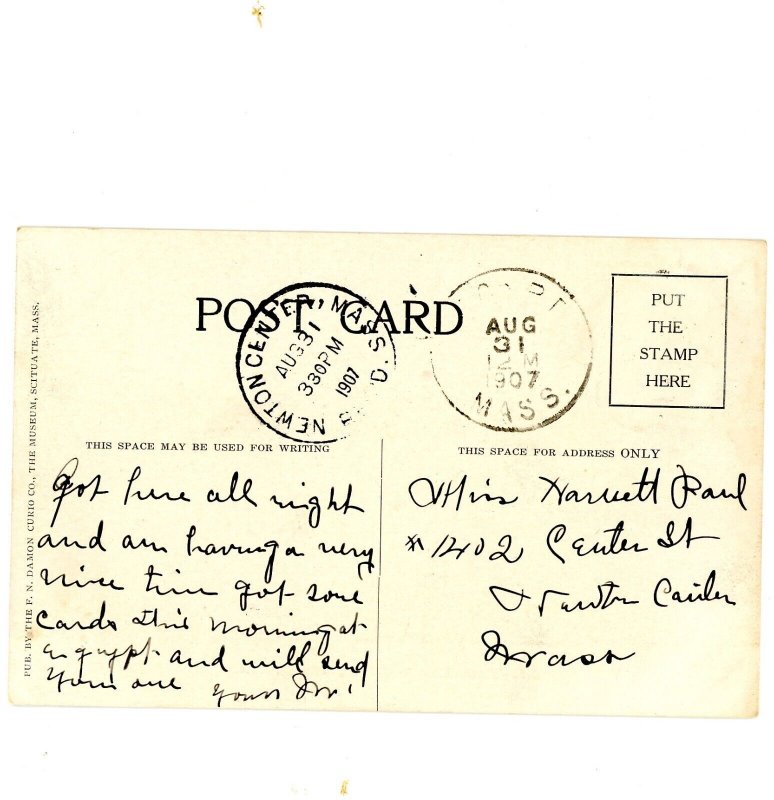 POST CARD
NEWTON CENTER, MASS.
AUG 31
330PM
1907
REC'D.
AUG
31
M
1907
MASS.
PUT
THE
STAMP
HERE
THIS SPACE MAY BE USED FOR WRITING
THIS SPACE FOR ADDRESS ONLY
PUB. BY THE F. N. DAMON CURIO CO., THE MUSEUM, SCITUATE, MASS.
Got here all night
and am having a very
nice time got some
cards this morning at
and will send
you one yours
Miss Harriett Paul
#1402 Center St
Newton Center
Mass